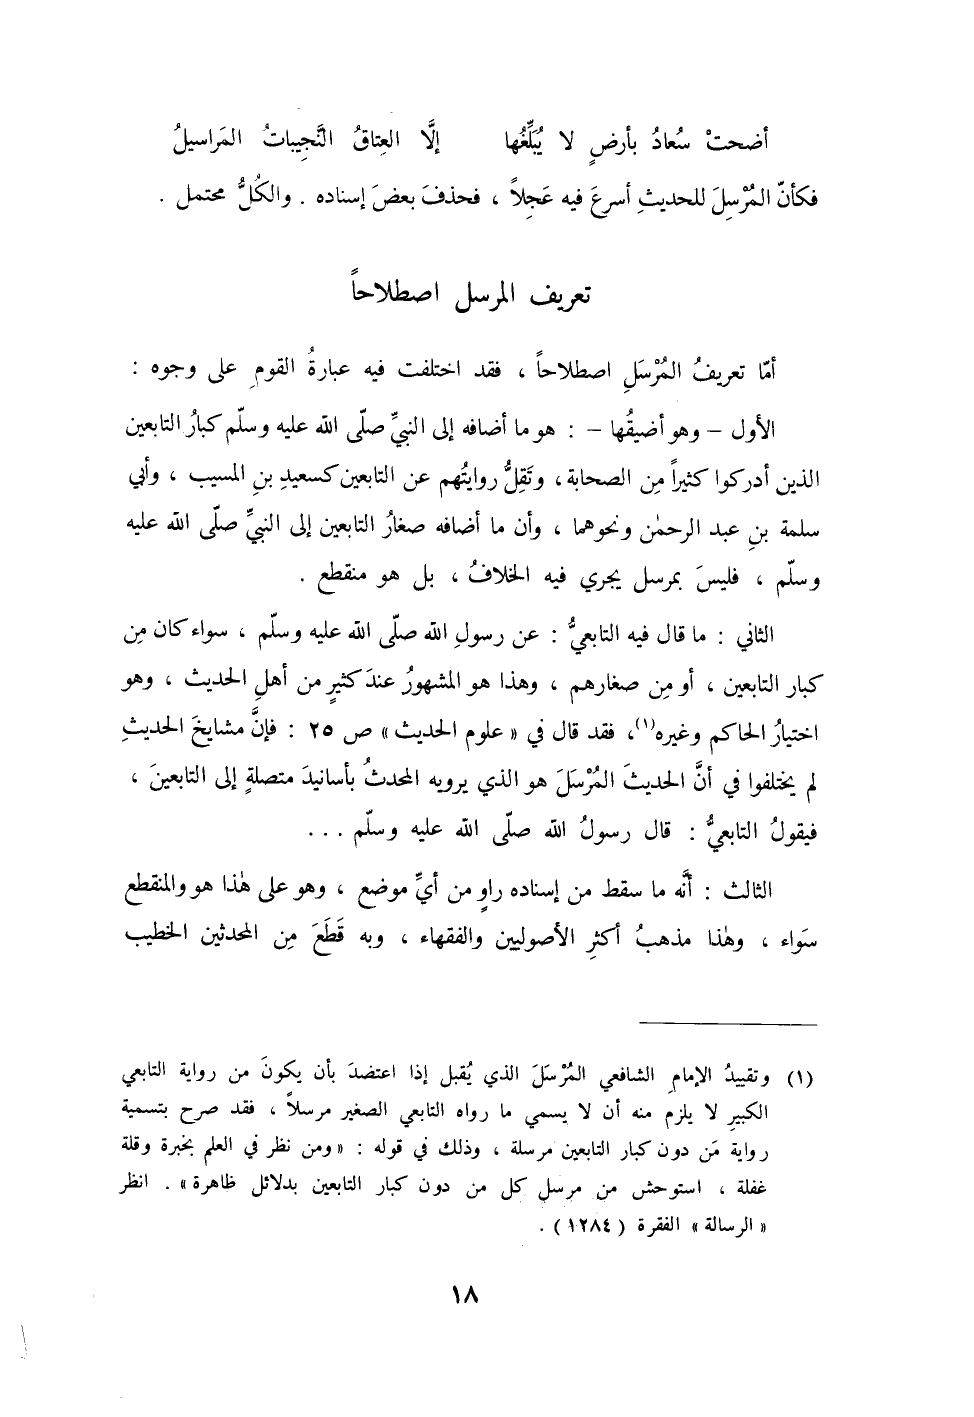 أضحتْ سُعادُ بأرضٍ لا يُبَلِّغُها إلَّا العِتاقُ النَّجِيباتُ المَراسيلُ
فكأنّ المُرْسِلَ للحديثِ أسرعَ فيه عَجِلاً ، فحذفَ بعضَ إسناده . والكُلُّ محتمل .
تعريف المرسل اصطلاحاً
أمّا تعريفُ المُرْسَلِ اصطلاحاً ، فقد اختلفت فيه عبارةُ القومِ على وجوه :
الأول – وهو أضيقُها – : هو ما أضافه إلى النبيِّ صلّى الله عليه وسلّم كبارُ التابعين
الذين أدركوا كثيراً مِن الصحابة ، وتَقِلُّ روايتُهم عن التابعين كسعيدِ بنِ المسيب ، وأبي
سلمة بنِ عبد الرحمٰن ونحوهما ، وأن ما أضافه صغارُ التابعين إلى النبيِّ صلّى الله عليه
وسلّم ، فليسَ بمرسل يجري فيه الخلافُ ، بل هو منقطع .
الثاني : ما قال فيه التابعيُّ : عن رسولِ الله صلّى الله عليه وسلّم ، سواء كان مِن
كبار التابعين ، أو مِن صغارهم ، وهذا هو المشهورُ عندَ كثيرٍ من أهلِ الحديث ، وهو
اختيارُ الحاكم وغيره(١)، فقد قال في « علوم الحديث » ص ٢٥ : فإنَّ مشايخَ الحديثِ
لم يختلفوا في أنَّ الحديثَ المُرْسَلَ هو الذي يرويه المحدثُ بأسانيدَ متصلةٍ إلى التابعينَ ،
فيقولُ التابعيُّ : قال رسولُ الله صلّى الله عليه وسلّم ...
الثالث : أنَّه ما سقط من إسناده راوٍ من أيِّ موضع ، وهو على هٰذا هو والمنقطع
سَواء ، وهٰذا مذهبُ أكثرِ الأصوليين والفقهاء ، وبه قَطَعَ مِن المحدثين الخطيب
(١) وتقييدُ الإمامِ الشافعي المُرْسَلَ الذي يُقبل إذا اعتضدَ بأن يكونَ من رواية التابعي
الكبيرِ لا يلزم منه أن لا يسمي ما رواه التابعي الصغير مرسلاً ، فقد صرح بتسمية
رواية مَن دون كبار التابعين مرسلة ، وذلك في قوله : «ومن نظر في العلم بخبرة وقلة
غفلة ، استوحش من مرسل كل من دون كبار التابعين بدلائل ظاهرة» . انظر
« الرسالة » الفقرة ( ١٢٨٤ ) .
١٨